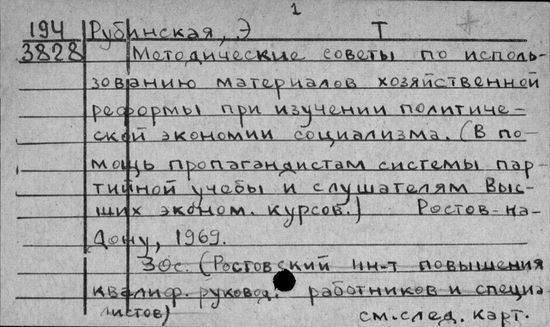 1
194 Рубинская, Э Т
3828 Методические советы по исполь-
зованию материалов хозяйственной
реформы при изучении политиче-
ской экономии социализма. (В по-
мощь пропагандистам системы пар-
тийной учебы и слушателям Выс-
ших эконом. курсов.) Ростов-на-
Дону, 1969.
30с. (Ростовский ин-т повышения
квалиф. руковод. работников и специа-
листов)
см.след. карт.